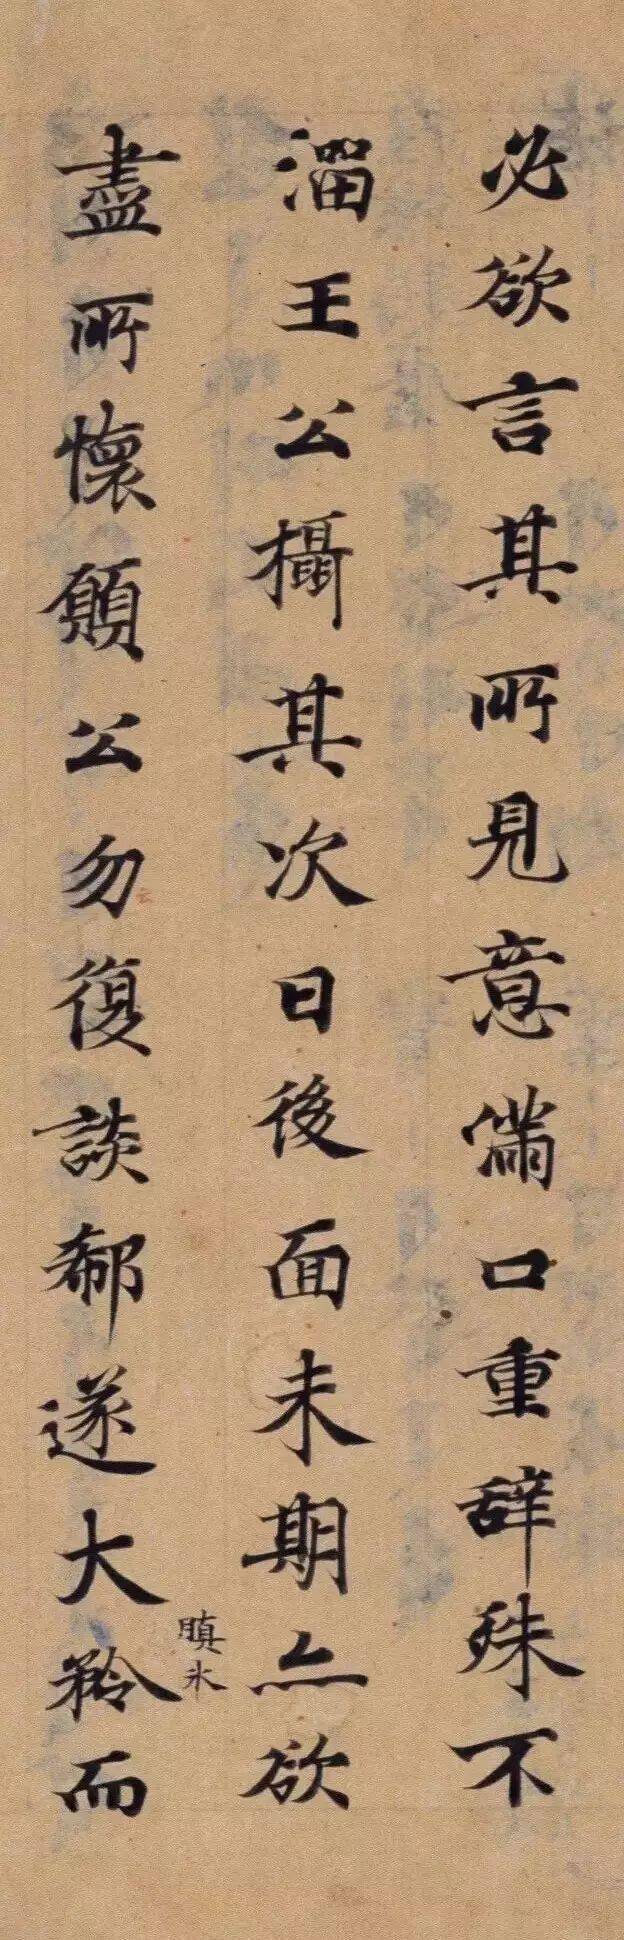 必欲言其所見意滿口重辭殊不
溜王公攝其次曰後面未期亦欲
盡所懷願公勿復談郗遂大矜而
瞋冰